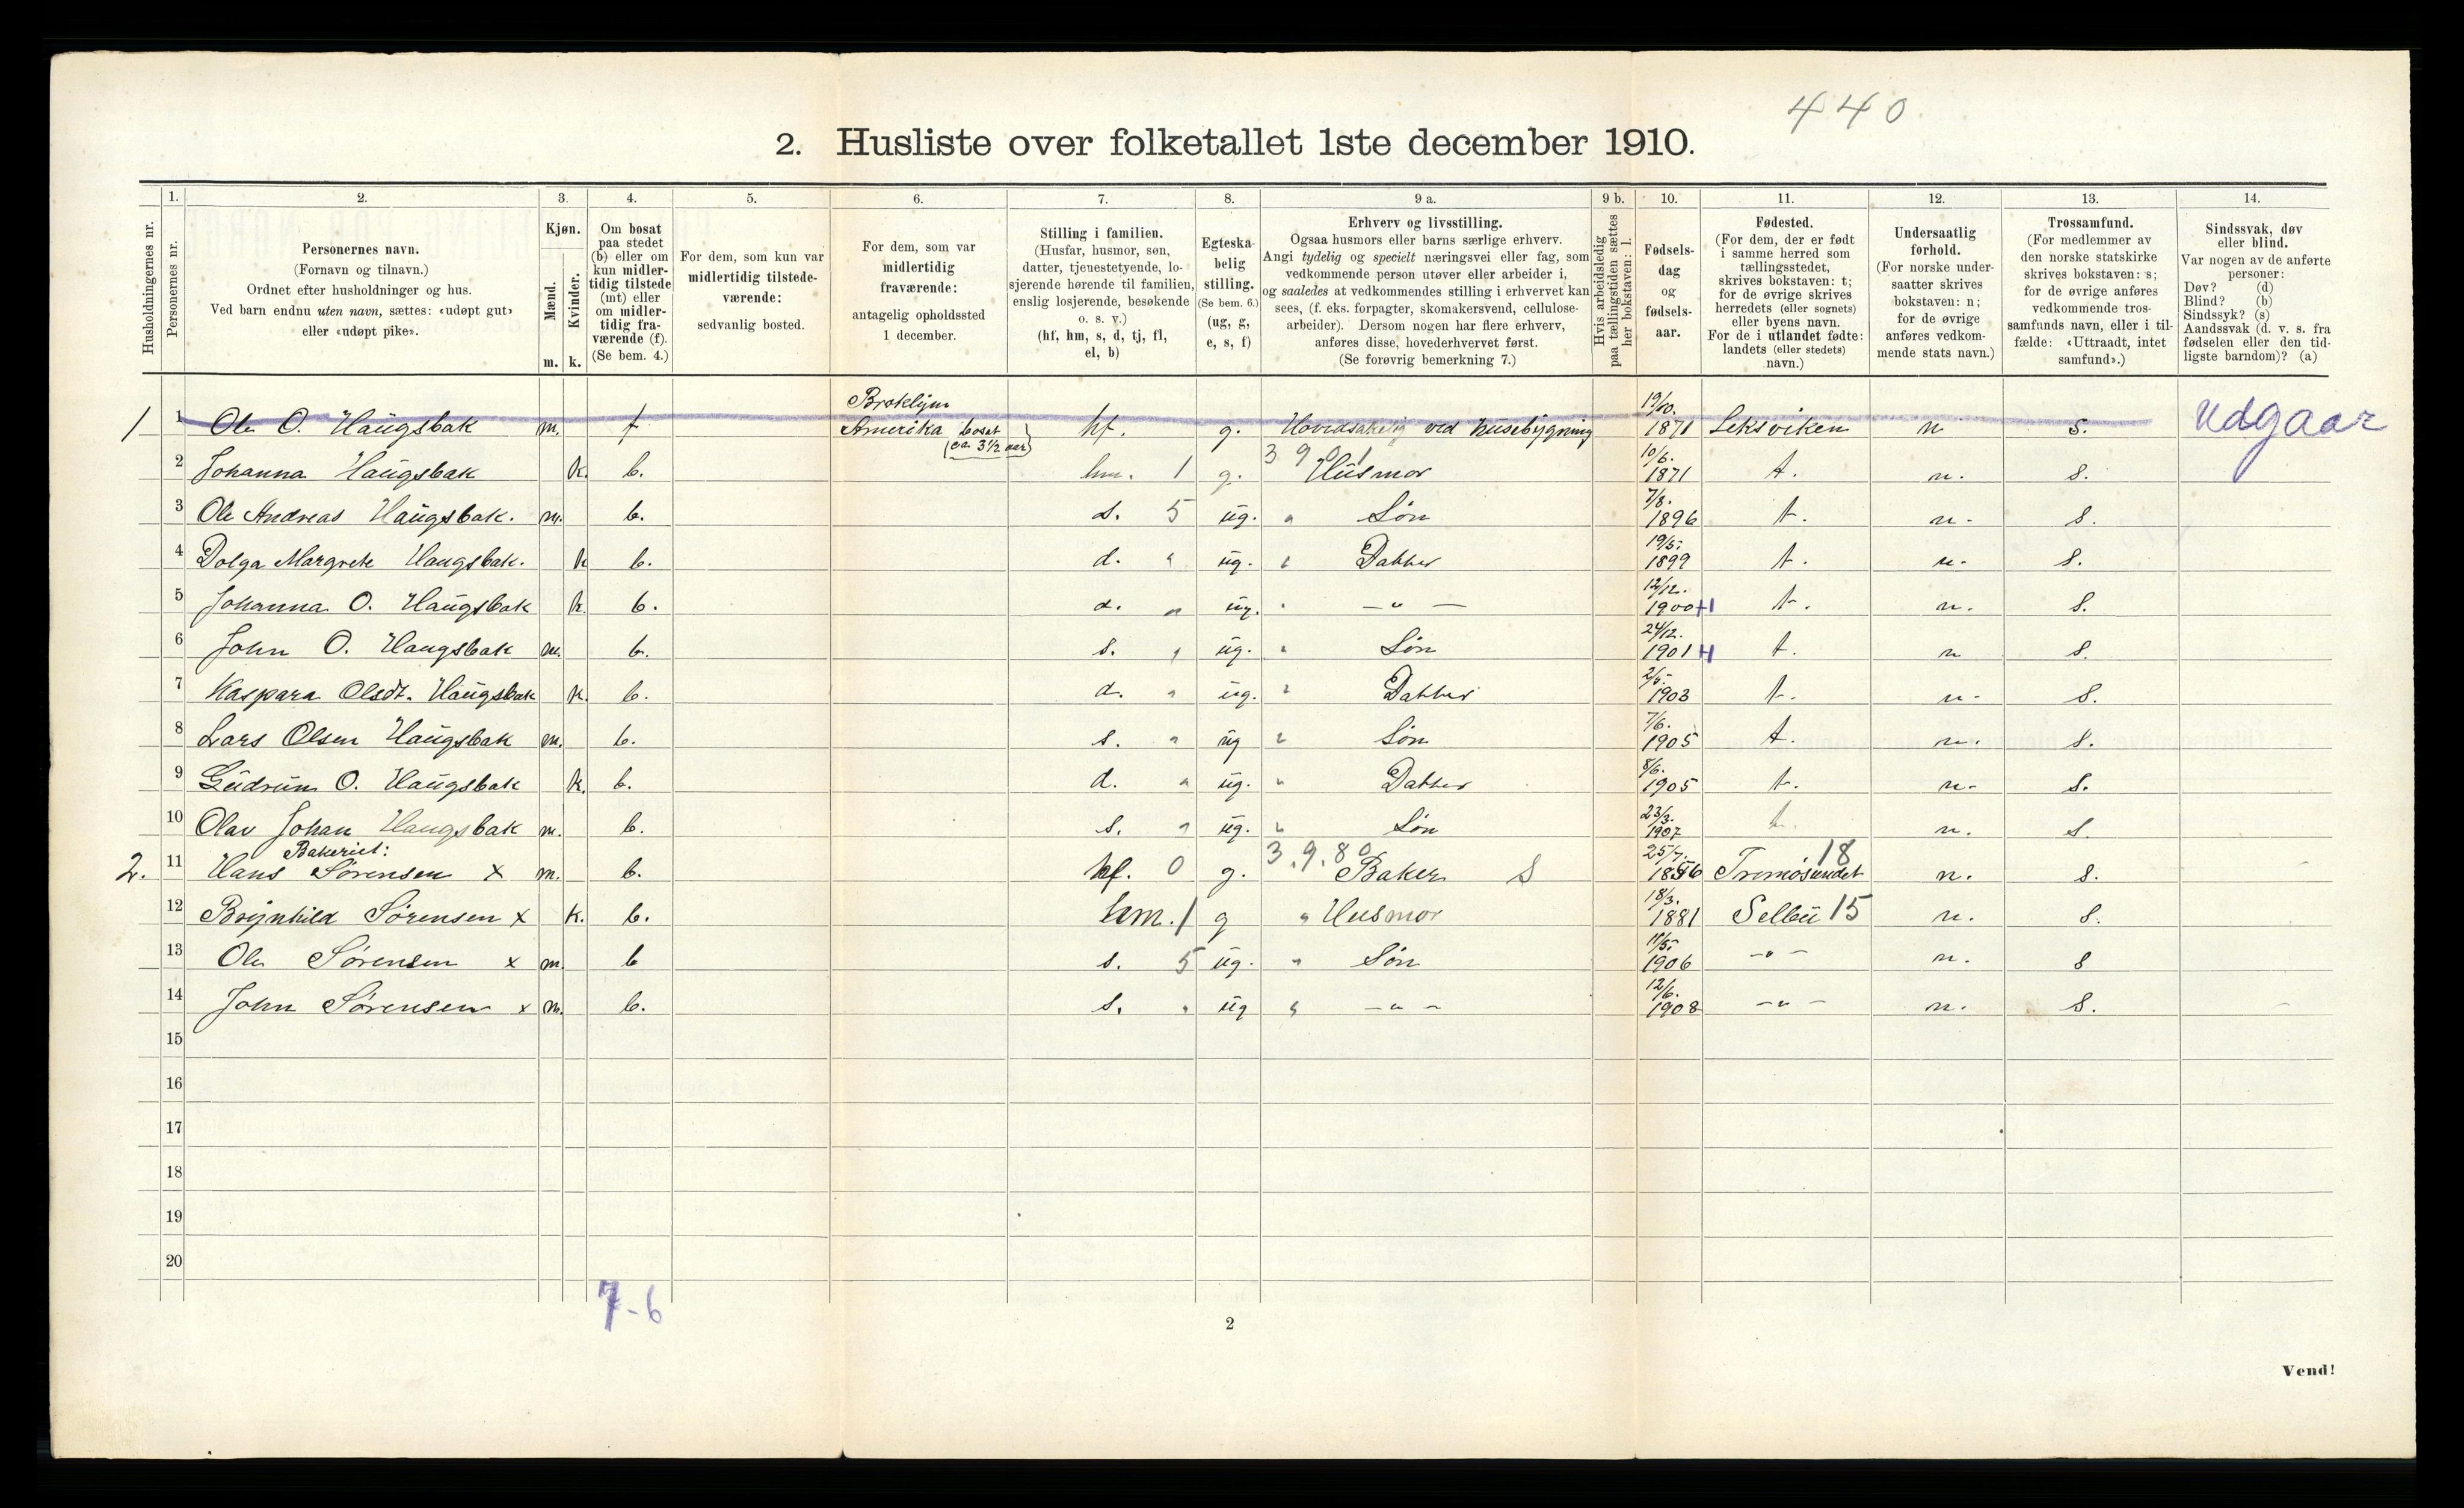 440
2. Husliste over folketallet 1ste december 1910.
1. 2. 3. 4. 5. 6. 7. 8. 9 a. 9 b. 10. 11. 12. 13. 14.
Husholdningernes nr.
Personernes nr.
Personernes navn.
(Fornavn og tilnavn.)
Ordnet efter husholdninger og hus.
Ved barn endnu uten navn, sættes: «udøpt gut»
eller «udøpt pike».
Kjøn.
Mænd.
Kvinder.
m. k.
Om bosat
paa stedet
(b) eller om
kun midler-
tidig tilstede
(mt) eller
om midler-
tidig fra-
værende (f).
(Se bem. 4.)
For dem, som kun var
midlertidig tilstede-
værende:
sedvanlig bosted.
For dem, som var
midlertidig
fraværende:
antagelig opholdssted
1 december.
Stilling i familien.
(Husfar, husmor, søn,
datter, tjenestetyende, lo-
sjerende hørende til familien,
enslig losjerende, besøkende
o. s. v.)
(hf, hm, s, d, tj, fl,
el, b)
Egteska-
belig
stilling.
(Se bem. 6.)
(ug, g,
e, s, f)
Erhverv og livsstilling.
Ogsaa husmors eller barns særlige erhverv.
Angi tydelig og specielt næringsvei eller fag, som
vedkommende person utøver eller arbeider i,
og saaledes at vedkommendes stilling i erhvervet kan
sees, (f. eks. forpagter, skomakersvend, cellulose-
arbeider). Dersom nogen har flere erhverv,
anføres disse, hovederhvervet først.
(Se forøvrig bemerkning 7.)
Hvis arbeidsledig
paa tællingstiden sættes
her bokstaven: l.
Fødsels-
dag
og
fødsels-
aar.
Fødested.
(For dem, der er født
i samme herred som
tællingsstedet,
skrives bokstaven: t;
for de øvrige skrives
herredets (eller sognets)
eller byens navn.
For de i utlandet fødte:
landets (eller stedets)
navn.)
Undersaatlig
forhold.
(For norske under-
saatter skrives
bokstaven: n;
for de øvrige
anføres vedkom-
mende stats navn.)
Trossamfund.
(For medlemmer av
den norske statskirke
skrives bokstaven: s;
for de øvrige anføres
vedkommende tros-
samfunds navn, eller i til-
fælde: «Uttraadt, intet
samfund».)
Sindssvak, døv
eller blind.
Var nogen av de anførte
personer:
Døv? (d)
Blind? (b)
Sindssyk? (s)
Aandssvak (d. v. s. fra
fødselen eller den tid-
ligste barndom)? (a)
Broklyn 19/10.
1 1 Ole O. Haugsbak m. f Amerika bosat (ca. 3½ aar) hf. g. ved husebygning 1871 Leksviken n s. udgaar
3 9 0 1 10/6.
2 Johanna Haugsbak k. b. hm. 1 g. Husmor 1871 t. n. s.
7/8.
3 Ole Andreas Haugsbak. m. b. s. 5 ug. " Søn 1896 t. n. s.
19/5.
4 Margrete Haugsbak. k b. d. " ug. " Datter 1899 t. n. s.
12/12.
5 Johanna O. Haugsbak k. b. d. " ug. " — " — 1900 +1 t. n. s.
24/12.
6 John O. Haugsbak m. b. s. " ug. " Søn 1901 +1 t. n s.
2/5.
7 Kaspara Olsdt. Haugsbak k. b. d. " ug. " Datter 1903 t. n. s.
7/6.
8 Lars Olsen Haugsbak m. b. s. " ug " Søn 1905 t. n. s.
8/6.
9 Gudrun O. Haugsbak k. b. d. " ug. " Datter 1905 t. n. s.
23/3.
10 Olav Johan Haugsbak m. b. s. " ug. " Søn 1907 t. n. s.
Bakeriet: 3.9.8 0 25/7. 18
2. 11 Hans Sørensen x m. b. hf. 0 g. Baker S 1856 Tromøsundet n. s.
18/3.
12 Brynhild Sørensen x k. b. hm. 1 g " Husmor 1881 Selbu 15 n. s.
11/5.
13 Ole Sørensen x m. b s. 5 ug. " Søn 1906 — " — n. s
12/6.
14 John Sørensen x m. b. s. " ug " — " — 1908 — " — n. s.
15
16
17
18
19
20
7-6
2
Vend!